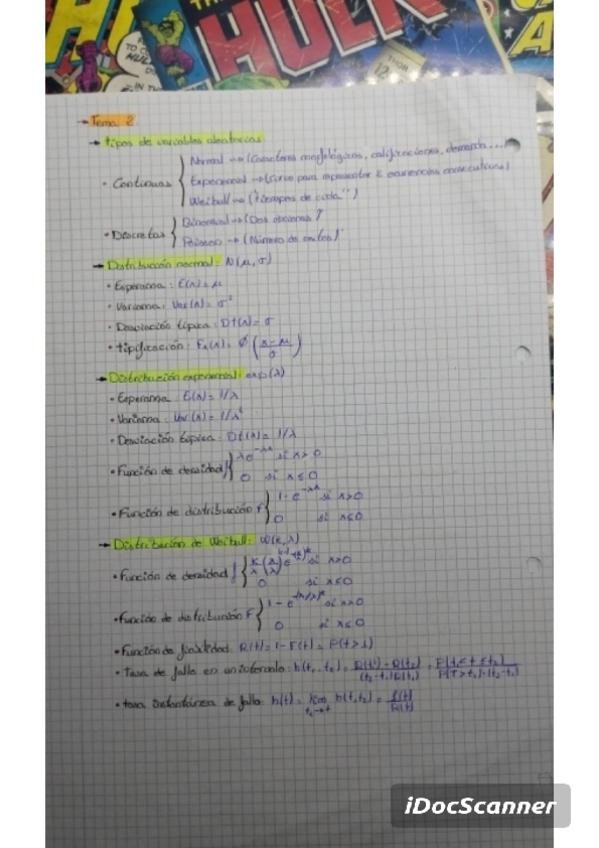 THE
HULK
THOR
12
→ Tema 2
→ tipos de variables aleatorias
Normal → (Caracteres morfológicos, calificaciones, demanda...)
· Continuas { Exponencial → (sirve para representar 2 ocurrencias consecutivas)
Weibull → ("tiempos de vida")
· Discretas { Binomial → (Dos opciones)
Poisson → (Número de éxitos)
→ Distribución normal: N(μ, σ)
· Esperanza: E(x)=μ
· Varianza: Var(x)= σ²
· Desviación típica: Dt(x)= σ
· tipificación: Fx(x)= Ø (x-μ/σ)
→ Distribución exponencial: exp(λ)
· Esperanza: E(x)= 1/λ
· Varianza: Var(x)= 1/λ²
· Desviación típica: Dt(x)= 1/λ
· Función de densidad f { λe^-λx si x>0
0 si x≤0
· Función de distribución F { 1-e^-λx si x>0
0 si x≤0
→ Distribución de Weibull: W(k,λ)
· Función de densidad f { k/λ (x/λ)^k-1 e^-(x/λ)^k si x>0
0 si x≤0
· Función de distribución F { 1-e^-(x/λ)^k si x>0
0 si x≤0
· Función de fiabilidad: R(t)= 1-F(t)= P(T>t)
· Tasa de fallo en un intervalo: h(t₁,t₂)= R(t₁)-R(t₂)/(t₂-t₁)R(t₁) = P[t₁≤T≤t₂]/P[T>t₁]·(t₂-t₁)
· tasa instantánea de fallo: h(t)= lim t₂→t h(t,t₂)= f(t)/R(t)
iDocScanner